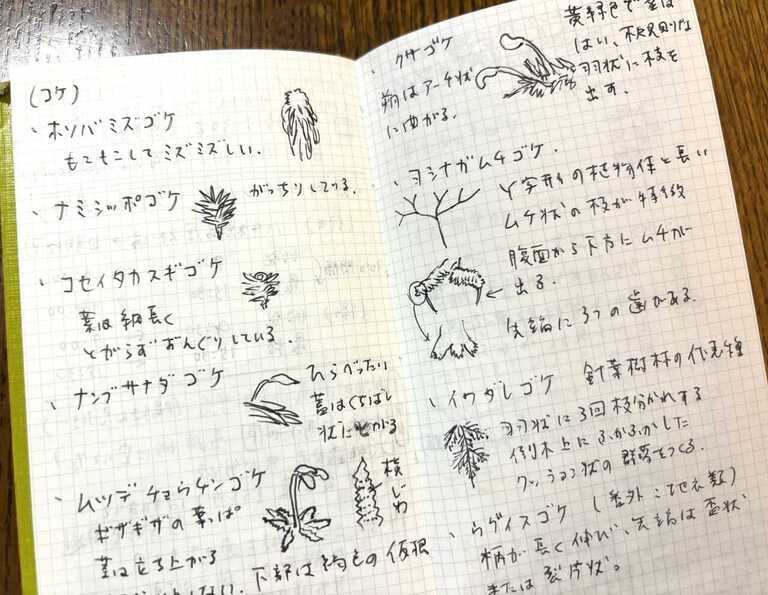 (コケ)
、ホソバミズゴケ
もこもこして ミズミズしい.
、ナミシッポゴケ
がっちりしている.
、コセイタカスギゴケ
葉は細長く
とがらずずんぐりしている.
、ナンブサナダゴケ
ひらべったい
蓋はくちばし
状にとがる
、ムツデチョウチンゴケ
横じわ
ギザギザの葉っぱ
茎は立ち上がる
しない. 下部は褐色の仮根
、クサゴケ
黄緑色で茎は
はい、不規則な
羽状に枝を
出す.
朔はアーチ状
に曲がる.
、ヨシナガムチゴケ.
Y字形の植物体と長い
ムチ状の枝が特徴
腹面から下方にムチが
出る.
先端に3つの歯がある.
、イワダレゴケ 針葉樹林の代表種
羽状に3回枝分かれする
倒木上にふかふかした
クッション状の群落をつくる.
、ウグイスゴケ (番外:地衣類)
柄が長く伸び、先端は盃状
または裂片状。